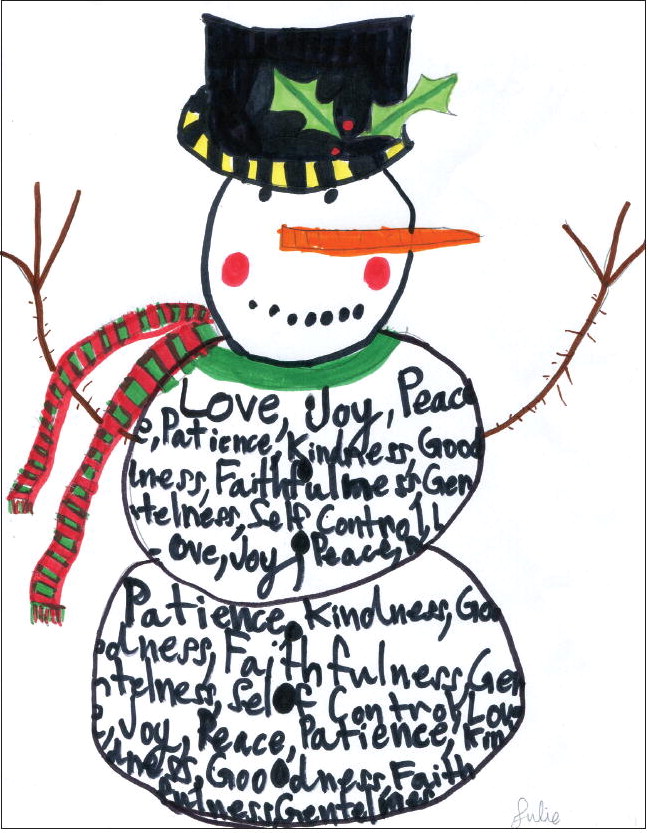 Love, Joy, Peac
e, Patience, Kindness, Good
lness, Faithfulness, Gen
telness, Self Controll
ove, Joy, Peace,
Patience, Kindness, Go
odness, Faithfulness, Gen
ntelness, Self Control, Lov
e, Joy, Peace, Patience, Kin
dness, Goodness, Faith
fulness Gentelness
Julie